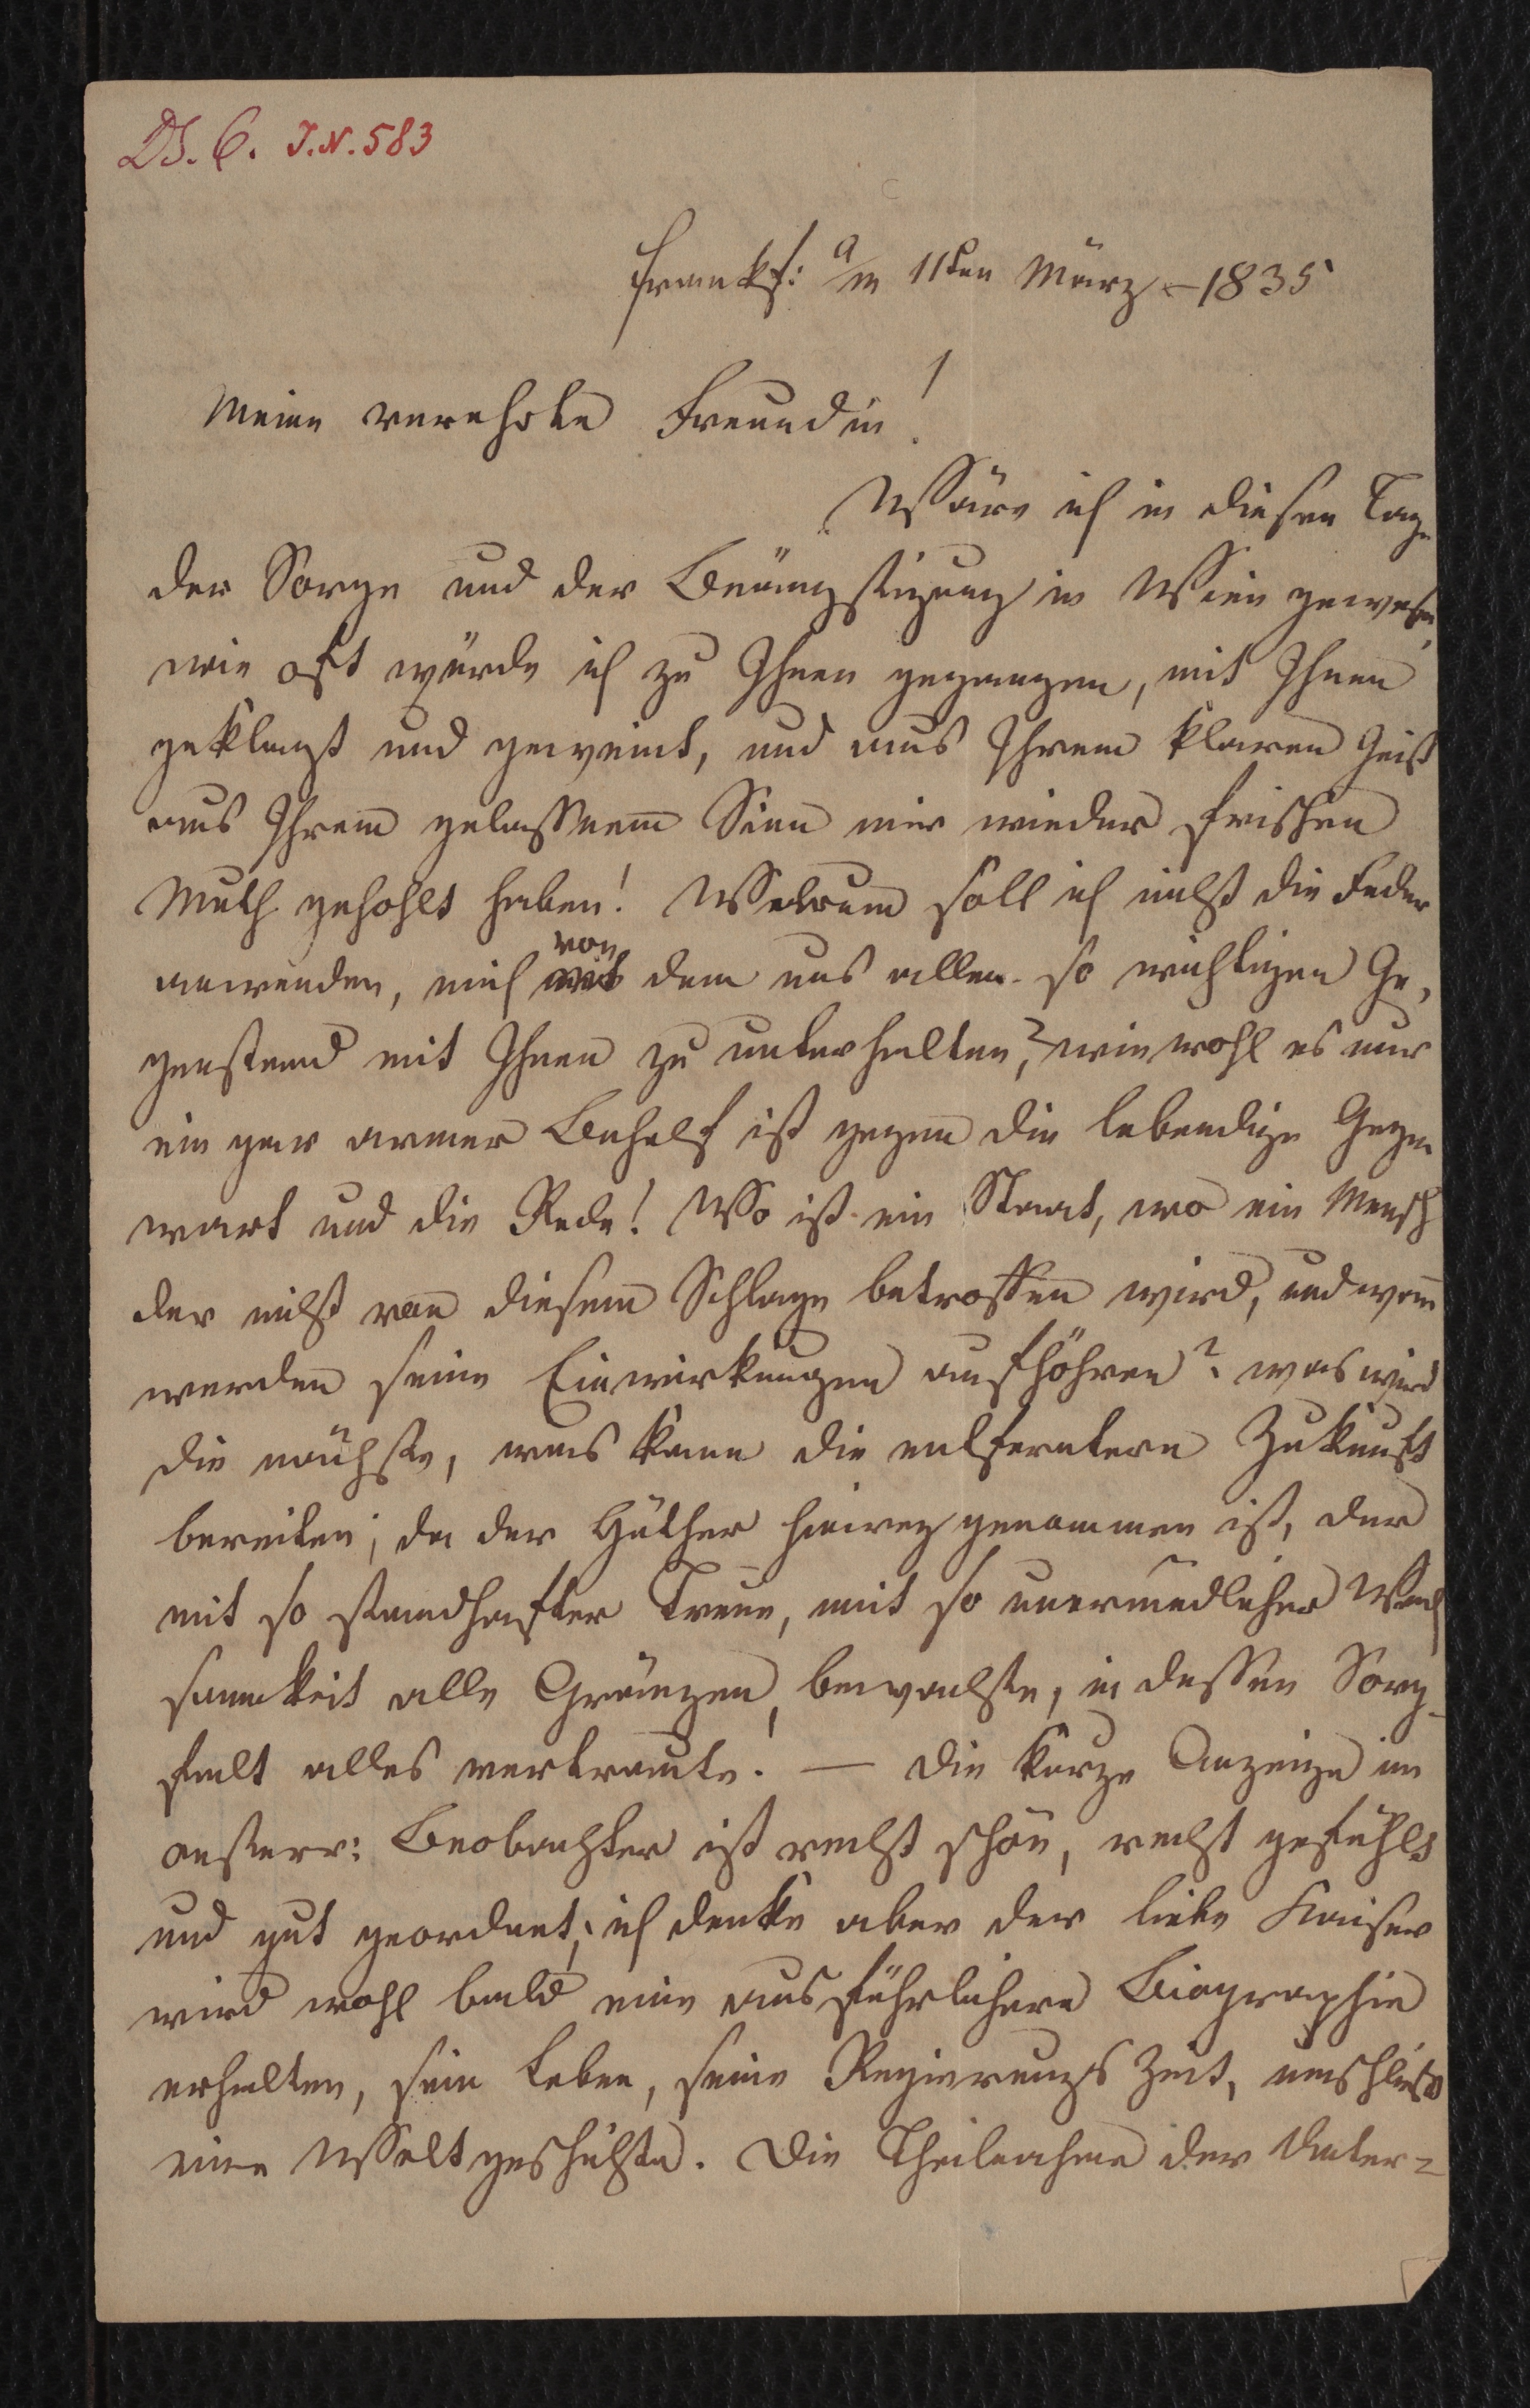 DS. C. J.N. 583
Frankf: a/m 11ten März – 1835
Meine verehrte Freundin!
Wäre ich in diesen Tage
der Sorge und der Beängstigung in Wien gewesen,
wie oft würde ich zu Ihnen gegangen, mit Ihnen
geklagt und geweint, und aus Ihrem klaren Geist
aus Ihrem gelassnem Sinn mir wieder frischen
Muth gehohlt haben! Warum soll ich nicht die Feder
anwenden, mich von dem uns allen so wichtigen Ge,
genstand mit Ihnen zu unterhalten, wiewohl es nur
ein gar armer Behelf ist gegen die lebendige Gegen
wart und die Rede! Wo ist ein Staat, wo ein Mensch
der nicht von diesem Schlage betroffen wird, und wenn
werden seine Einwirkungen aufhöhren? was wird
die nächste, was kann die entferntere Zukunft
bereiten; da der Hüther hinweg genommen ist, der
mit so standhafter Treue, mit so unermüdlicher Wach
samkeit alle Gränzen bewachte, in dessen Sorg-
falt alles vertraute! — die kurze Anzeige im
oesterr: Beobachter ist recht schön, recht gefühlt
und gut geordnet; ich denke aber der liebe Kaiser
wird wohl bald eine ausführlichere Biographie
erhalten, sein Leben, seine Regierungs Zeit, umschließt
eine Weltgeschichte. Die Theilnahme der Unter=